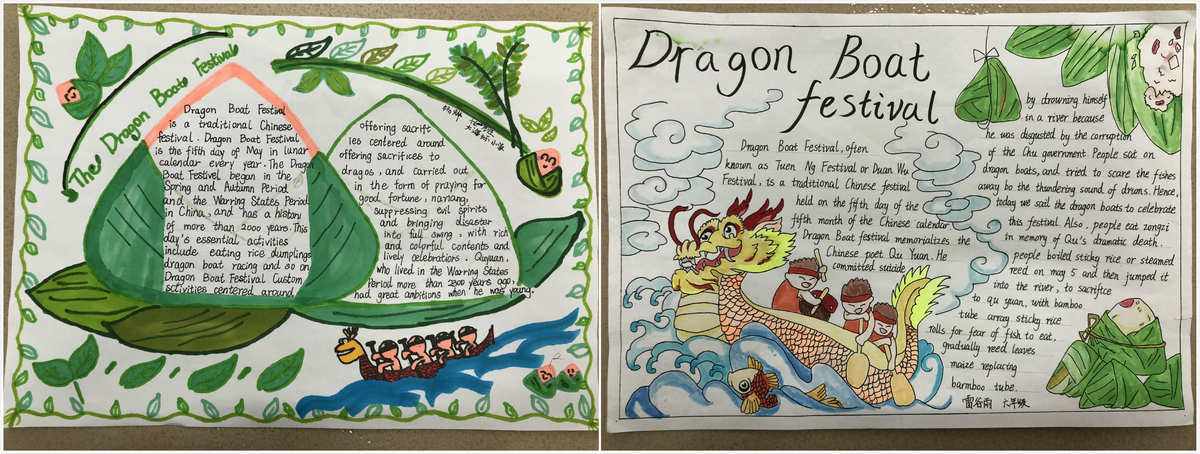 The Dragon Boats Festivals
Dragon Boat Festival
is a traditional Chinese
festival. Dragon Boat Festival,
is the fifth day of May in lunar
calendar every year. The Dragon
Boat Festivel began in the
Spring and Autumn Period
and the Warring States Period
in China, and has a history
of more than 2000 years. This
day's essential activities
include eating rice dumplings
dragon boat racing and so on
Dragon Boat Festival Custom
activities centered around
offering sacrift
ies centered around
offering sacrifices to
dragos, and carried out
in the form of praying for
good fortune, nanang,
suppressing evil spirits
and bringing disaster
into full swing, with rich
and colorful contents and
lively celebrations. Quyuan,
who lived in the Warring States
Period more than 2300 years ago,
had great ambitions when he was young.
Dragon Boat
festival
Dragon Boat Festival, often
known as Tuen Ng Festival or Duan Wu
Festival, is a traditional Chinese festival
held on the fifth day of the
fifth month of the Chinese calendar
Dragon Boat festival memorializes the
Chinese poet Qu Yuan. He
committed suicide
by drowning himself
in a river because
he was disgusted by the corruption
of the Chu government. People sat on
dragon boats, and tried to scare the fishes
away bo the thundering sound of drums. Hence,
today we sail the dragon boats to celebrate
this festival. Also, people eat zongzi
in memory of Qu's dramatic death.
people boiled sticky rice or steamed
reed on may 5 and then jumped it
into the river, to sacrifice
to qu yuan, with bamboo
tube array sticky rice
rolls for fear of fish to eat,
gradually reed leaves
maize replacing
barmboo tube.
雷谷雨 六年级